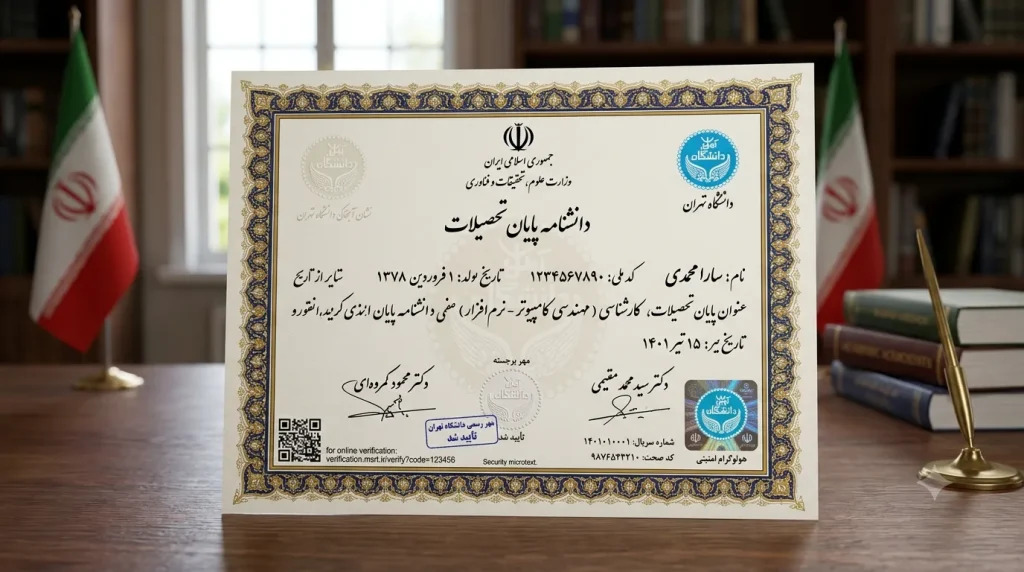 جمهوری اسلامی ایران
وزارت علوم، تحقیقات و فناوری
دانشگاه
دانشگاه تهران
دانشگاه
نشان آبجکای دانشگاه تهران
دانشنامه پایان تحصیلات
نام: سارا محمدی کد ملی: ۱۲۳۴۵۶۷۸۹۰ تاریخ تولد: ۱ فروردین ۱۳۷۸ تنایر از تاریخ
عنوان پایان تحصیلات، کارشناسی (مهندسی کامپیوتر - نرم افزار) صفی دانشنامه پایان
تاریخ یر: ۱۵ تیر ۱۴۰۱
مهر برجسته
دکتر سید محمد مقیمی
دکتر محمود کمره‌ای
دانشگاه
تأیید شد
مهر رسمی دانشگاه تهران
تأیید شد
شماره سریال: ۱۴۰۱۰۱۰۰۰۱
کد صحت: ۹۸۷۶۵۴۳۲۱۰
دانشگاه
هولوگرام امنیتی
for online verification:
verification.msrt.ir/verify?code=123456
Security microtext.